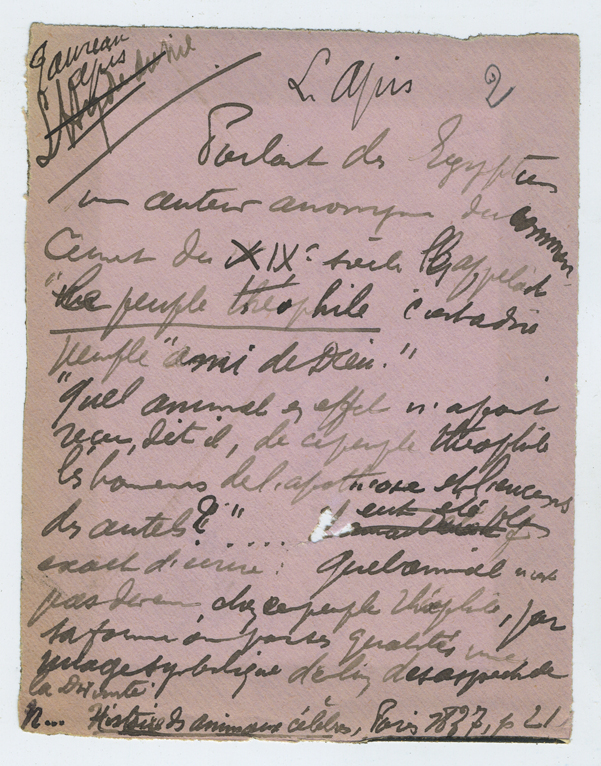 Taureau
apis
L. Apis 2
Parlant des Egyptiens
un auteur anonyme du commen-
cement du XIXe siècle l'appelait
"le peuple théophile c'est à dire
peuple "ami de Dieu."
"Quel animal en effet n'a point
reçu, dit il, de ce peuple théophile
les honneurs de l'apothéose et l'encens
des autels?" .... Il eut été plus
exact d'écrire: Quel animal n'est
pas devenu chez ce peuple théophile, par
sa forme ou par ses qualités une
image symbolique de l'un des aspects de
la Divinité
N... Histoire des animaux célèbres, Paris 1837, p 21